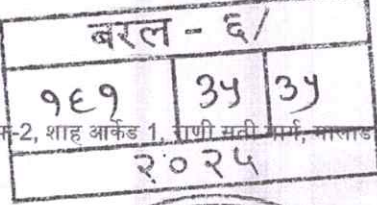 बरल - ६/
१६१ ३५ ३५
-2, शाह आर्केड 1, राणी सती मार्ग, मालाड
२०२५